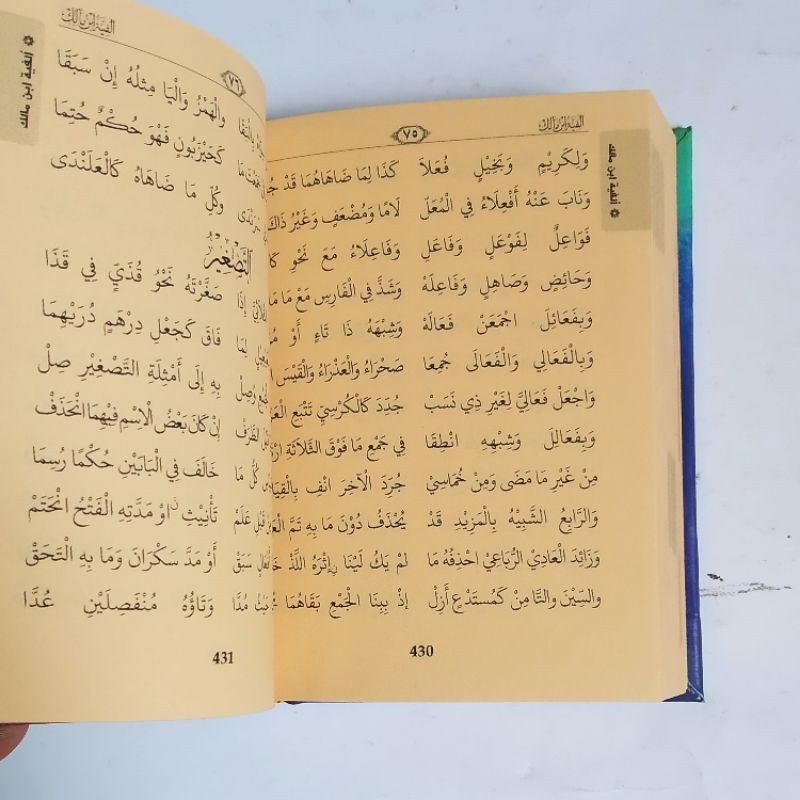 ألفية ابن مالك
٧٥
ألفية ابن مالك
وَلِكَرِيْمٍ وَبَخِيْلٍ فُعَلاَ كَذَا لِمَا ضَاهَاهُمَا قَدْ
وَنَابَ عَنْهُ أَفْعِلَاءُ فِي الْمُعَلّ لَامًا وَمُضْعَفٍ وَغَيْرُ ذَاكَ
فَوَاعِلٌ لِفَوْعَلٍ وَفَاعَلِ وَفَاعِلَاءَ مَعَ نَحْوِ
وَحَائِضٍ وَصَاهِلٍ وَفَاعِلَهْ وَشَذَّ فِي الْفَارِسِ مَعْ مَا
وَبِفَعَائِلَ اجْمَعَنْ فَعَالَهْ وَشِبْهَهُ ذَا تَاءٍ أَوْ
وَبِالْفَعَالِي وَالْفَعَالَى جُمِعَا صَحْرَاءُ وَالْعَذْرَاءُ وَالْقَيْسَ
وَاجْعَلْ فَعَالِيَّ لِغَيْرِ ذِي نَسَبْ جُدِّدَ كَالْكُرْسِيِّ تَتْبَعِ
وَبِفَعَالِلَ وَشِبْهِهِ انْطِقَا فِي جَمْعِ مَا فَوْقَ الثَّلَاثَةِ
مِنْ غَيْرِ مَا مَضَى وَمِنْ خُمَاسِيْ جُرِّدَ الْآخِرَ انْفِ
وَالرَّابِعُ الشَّبِيْهُ بِالْمَزِيْدِ قَدْ يُحْذَفُ دُوْنَ مَا بِهِ تَمَّ
وَزَائِدَ الْعَادِي الرُّبَاعِيْ احْذِفْهُ مَا لَمْ يَكُ لَيْنًا إِثْرَهُ اللَّذْ
والسِّيْنَ والتَّا مِنْ كَمُسْتَدْعٍ أَزِلْ إِذْ بِبِنَا الْجَمْعِ بَقَاهُمَا
430
ألفية ابن مالك
٧٦
ألفية ابن مالك
وَالْهَمْزُ وَالْيَا مِثْلُهُ إِنْ سَبَقَا
كَحَيْزَبُونٍ فَهْوَ حُكْمٌ حُتِمَا
وَكُلِّ مَا ضَاهَاهُ كَالْعَلَنْدَى
التَّصْغِيْرُ
صَغَّرْتَهُ نَحْوُ قُذَيٍّ فِي قَذَا
فَاقَ كَجَعْلِ دِرْهَمٍ دُرَيْهِمَا
بِهِ إِلَى أَمْثِلَةِ التَّصْغِيْرِ صِلْ
إِنْ كَانَ بَعْضُ الْاِسْمِ فِيْهِمَا انْحَذَفْ
خَالَفَ فِي الْبَابَيْنِ حُكْمًا رُسِمَا
تَأْنِيْثٍ اوْ مَدَّتِهِ الْفَتْحُ انْحَتَمْ
أَوْ مَدَّ سَكْرَانَ وَمَا بِهِ الْتَحَقْ
وَتَاؤُهُ مُنْفَصِلَيْنِ عُدَّا
431